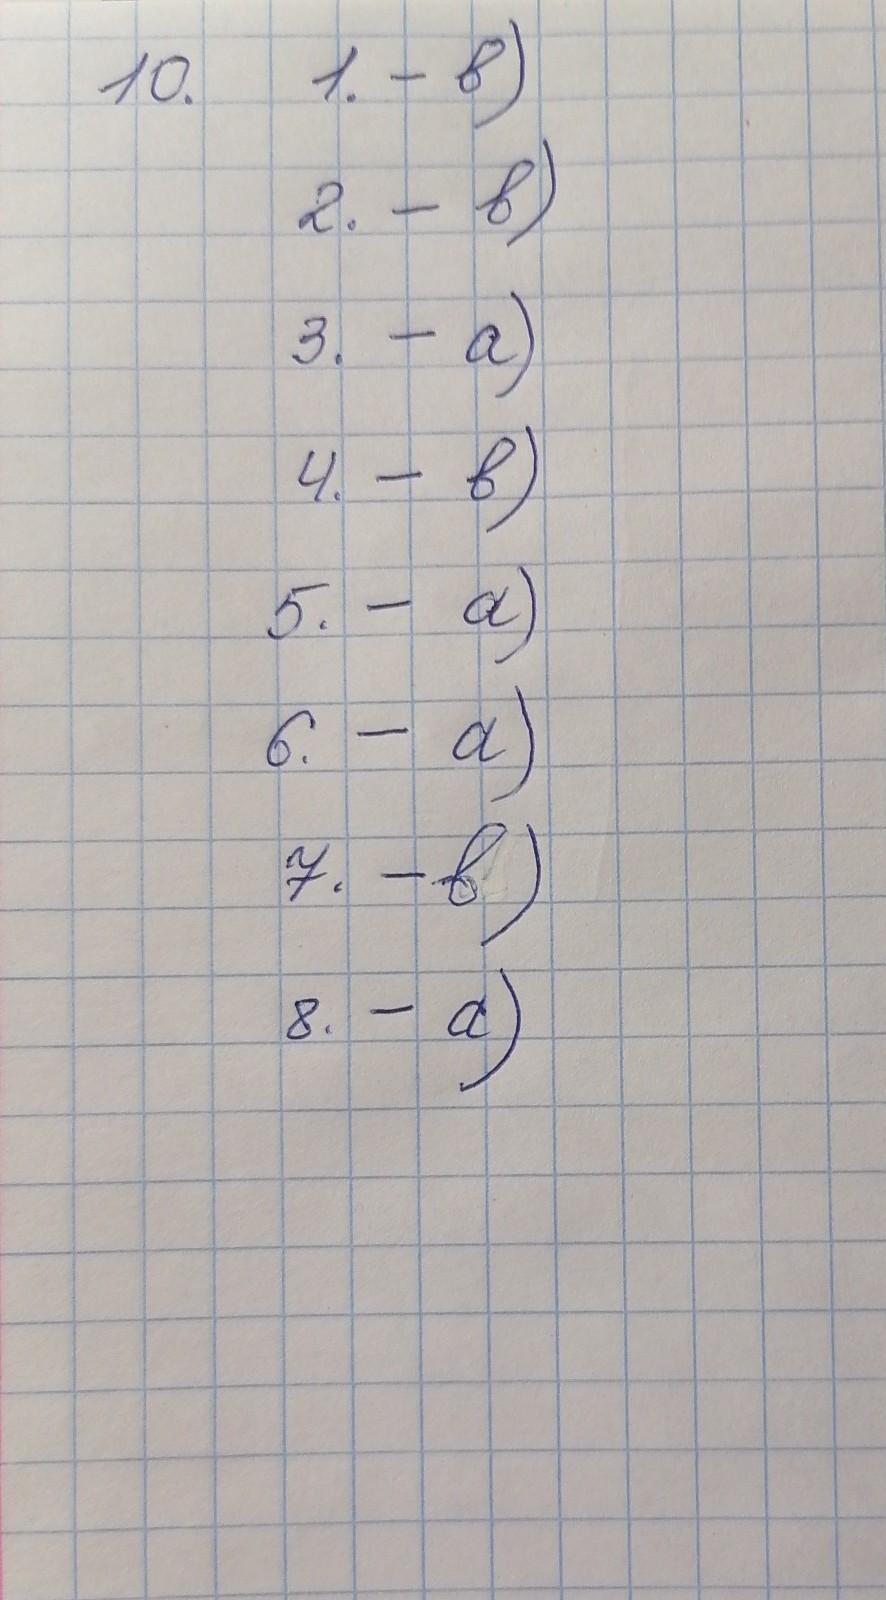 10. 1. - в)
2. - в)
3. - а)
4. - в)
5. - а)
6. - а)
7. - в)
8. - а)